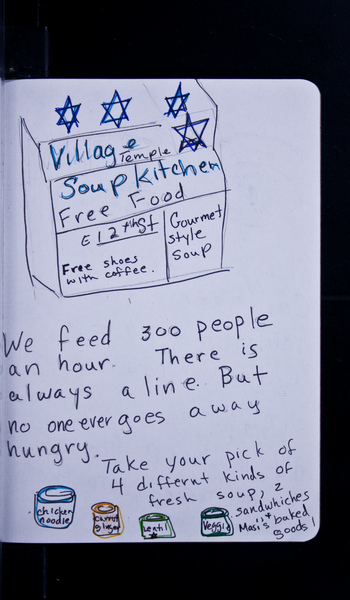 Village
Temple
Soup Kitchen
Free Food
E 12th St
Free shoes
with coffee.
Gourmet
style
soup
We feed 300 people
an hour. There is
always a line. But
no one ever goes away
hungry.
Take your pick of
4 differnt kinds of
fresh soup, 2
sandwhiches
baked
goods!
chicken
noodle
carrot
ginger
Lentil
Veggie